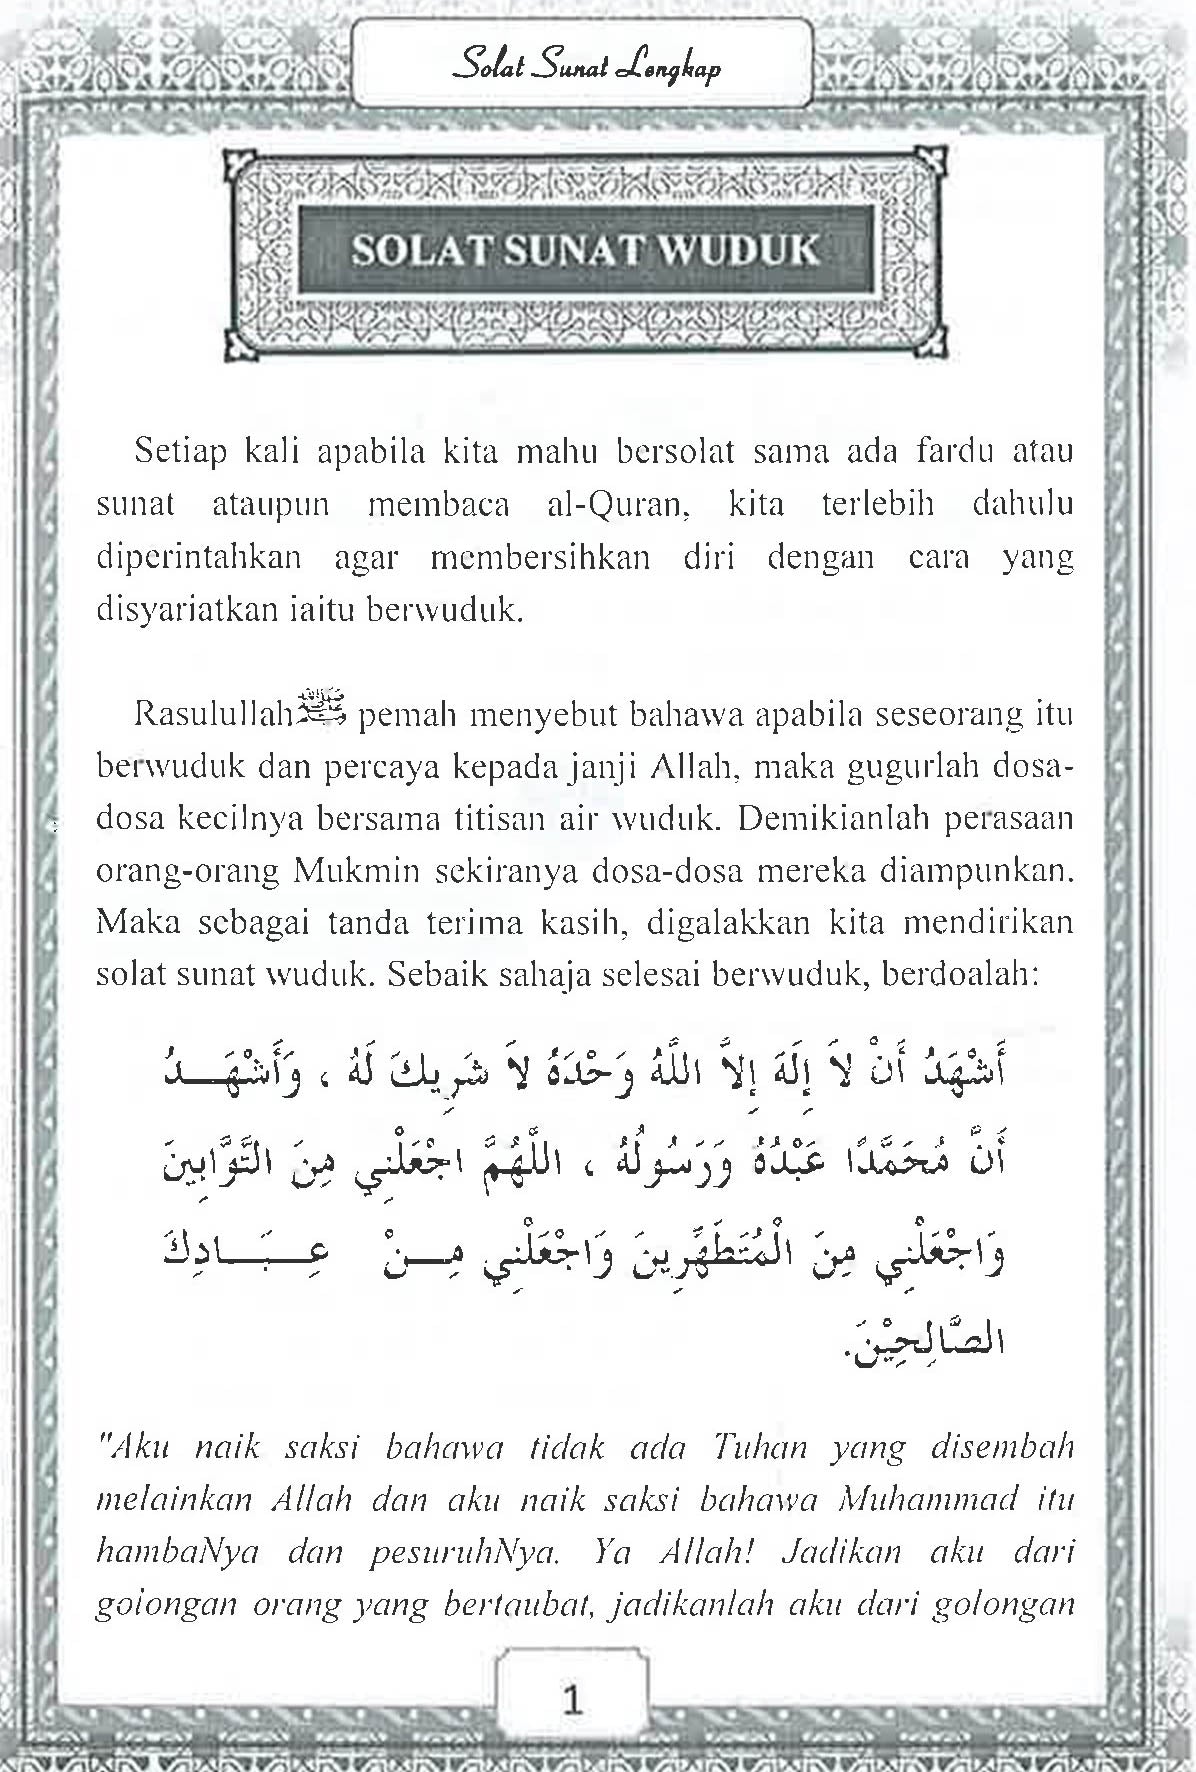 Solat Sunat Lengkap
SOLAT SUNAT WUDUK
Setiap kali apabila kita mahu bersolat sama ada fardu atau
sunat ataupun membaca al-Quran, kita terlebih dahulu
diperintahkan agar membersihkan diri dengan cara yang
disyariatkan iaitu berwuduk.
Rasulullah ﷺ pernah menyebut bahawa apabila seseorang itu
berwuduk dan percaya kepada janji Allah, maka gugurlah dosa-
dosa kecilnya bersama titisan air wuduk. Demikianlah perasaan
orang-orang Mukmin sekiranya dosa-dosa mereka diampunkan.
Maka sebagai tanda terima kasih, digalakkan kita mendirikan
solat sunat wuduk. Sebaik sahaja selesai berwuduk, berdoalah:
أَشْهَدُ أَنْ لاَ إِلَهَ إِلاَّ اللَّهُ وَحْدَهُ لاَ شَرِيكَ لَهُ ، وَأَشْهَــدُ
أَنَّ مُحَمَّدًا عَبْدُهُ وَرَسُولُهُ ، اللَّهُمَّ اجْعَلْنِي مِنَ التَّوَّابِينَ
وَاجْعَلْنِي مِنَ الْمُتَطَهِّرِينَ وَاجْعَلْنِي مِــنْ عِــبَــادِكَ
الصَّالِحِيْنَ.
"Aku naik saksi bahawa tidak ada Tuhan yang disembah
melainkan Allah dan aku naik saksi bahawa Muhammad itu
hambaNya dan pesuruhNya. Ya Allah! Jadikan aku dari
golongan orang yang bertaubat, jadikanlah aku dari golongan
1